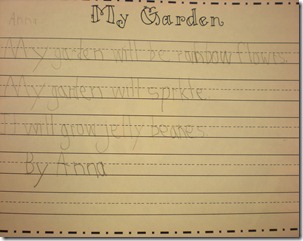 Anna
My Garden
My garden will be rainbow flowrs.
My garden will sprkle.
It will grow jelly beanes.
By Anna